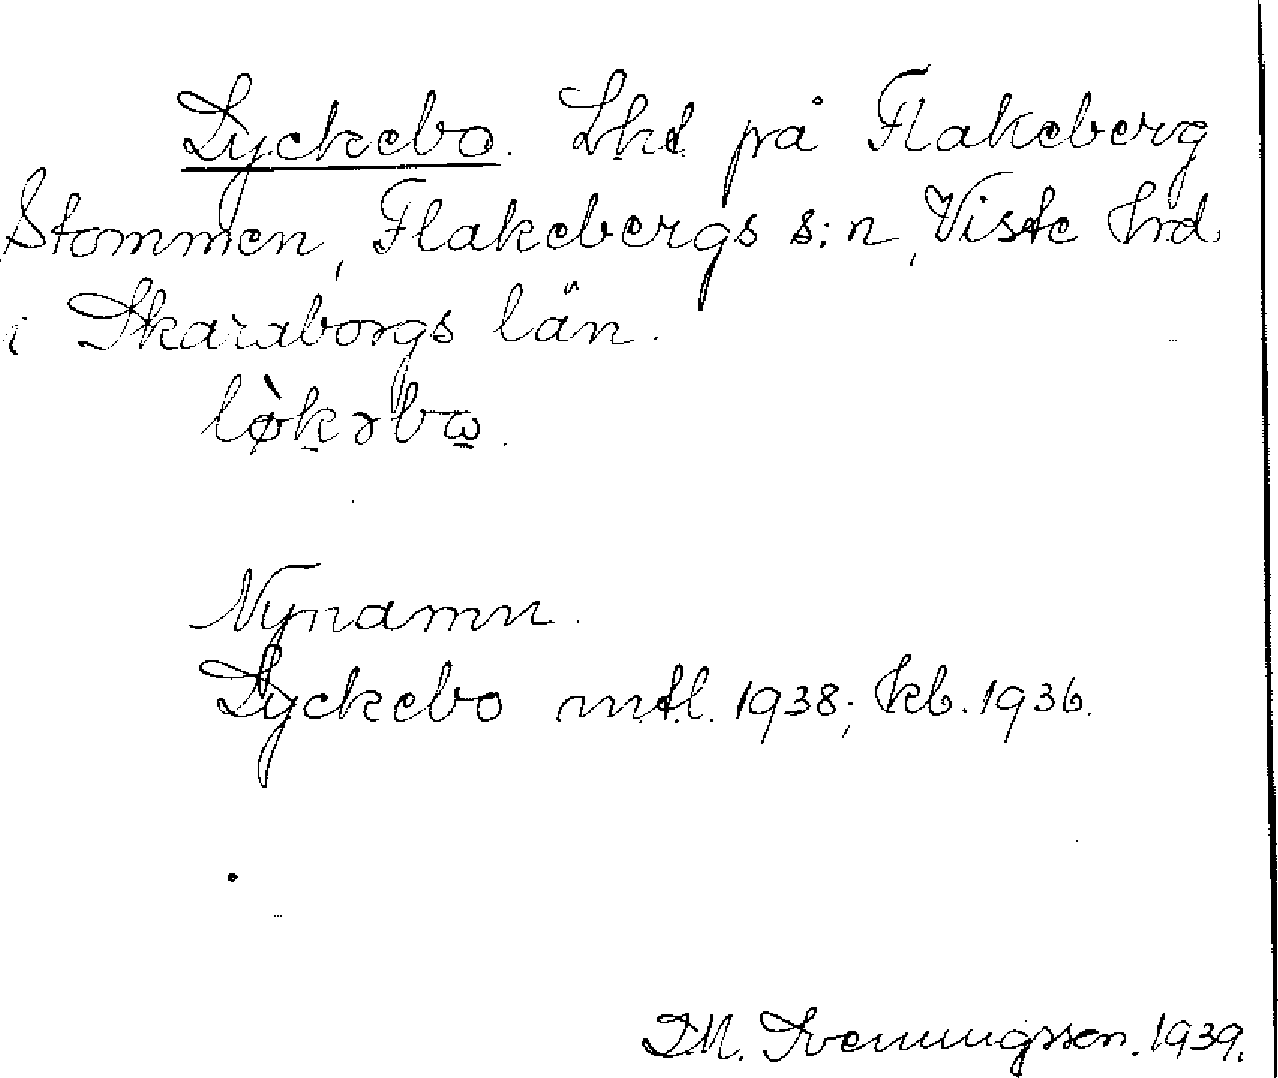 Lyckebo. Lht på Flakeberg
Stommen, Flakebergs s:n, Viste hrd.
i Skaraborgs län.
lø̀kəbω.
Nynamn.
Lyckebo mtl. 1938; kb. 1936.
Svenningsson. 1939.